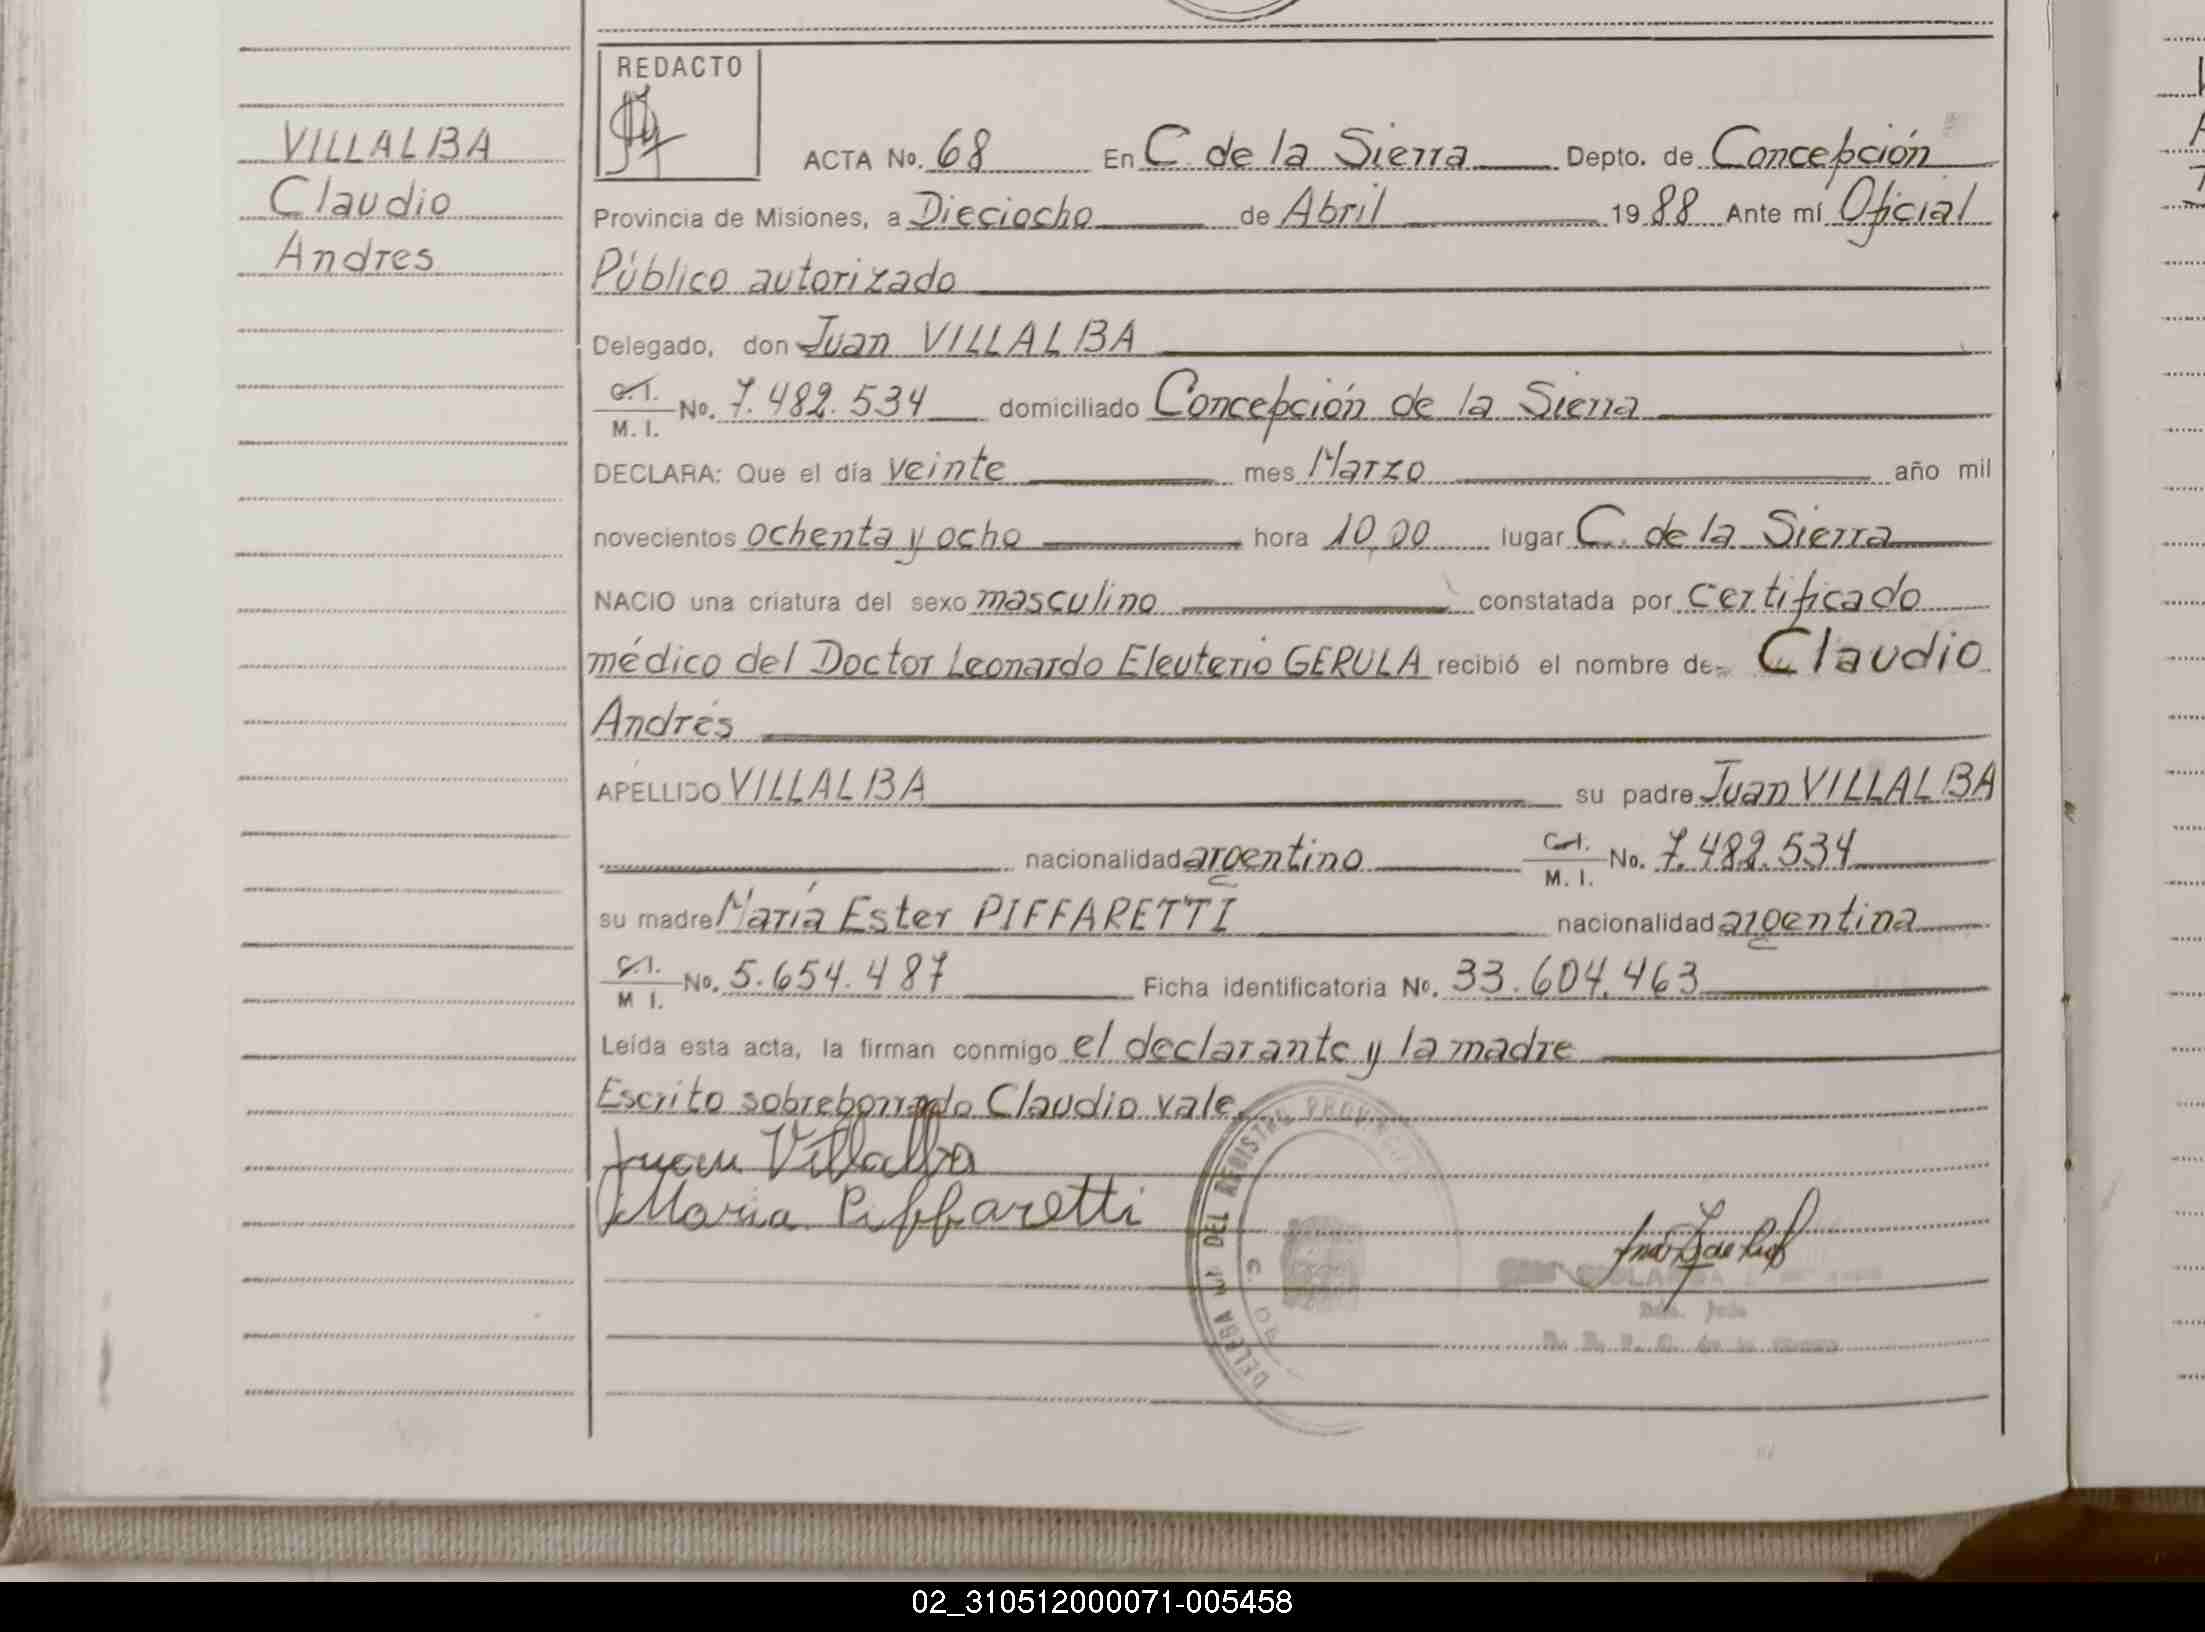 REDACTO
VILLALBA
Claudio
Andres
ACTA No. 68 En C. de la Sierra Depto. de Concepción
Provincia de Misiones, a Dieciocho de Abril 1988 Ante mí Oficial
Público autorizado
Delegado, don Juan VILLALBA
C.I. M.I. No. 7.482.534 domiciliado Concepción de la Sierra
DECLARA: Que el día veinte mes Marzo año mil
novecientos ochenta y ocho hora 10,00 lugar C. de la Sierra
NACIO una criatura del sexo masculino constatada por certificado
médico del Doctor Leonardo Eleuterio GERULA recibió el nombre de Claudio
Andrés
APELLIDO VILLALBA su padre Juan VILLALBA
nacionalidad argentino C.I. M.I. No. 7.482.534
su madre María Ester PIFFARETTI nacionalidad argentina
C.I. M I. No. 5.654.487 Ficha identificatoria No. 33.604.463
Leída esta acta, la firman conmigo el declarante y la madre
Escrito sobreborrado Claudio vale.
Juan Villalba
Maria Piffaretti
DEL REGISTRO PROVINCIAL
02_310512000071-005458